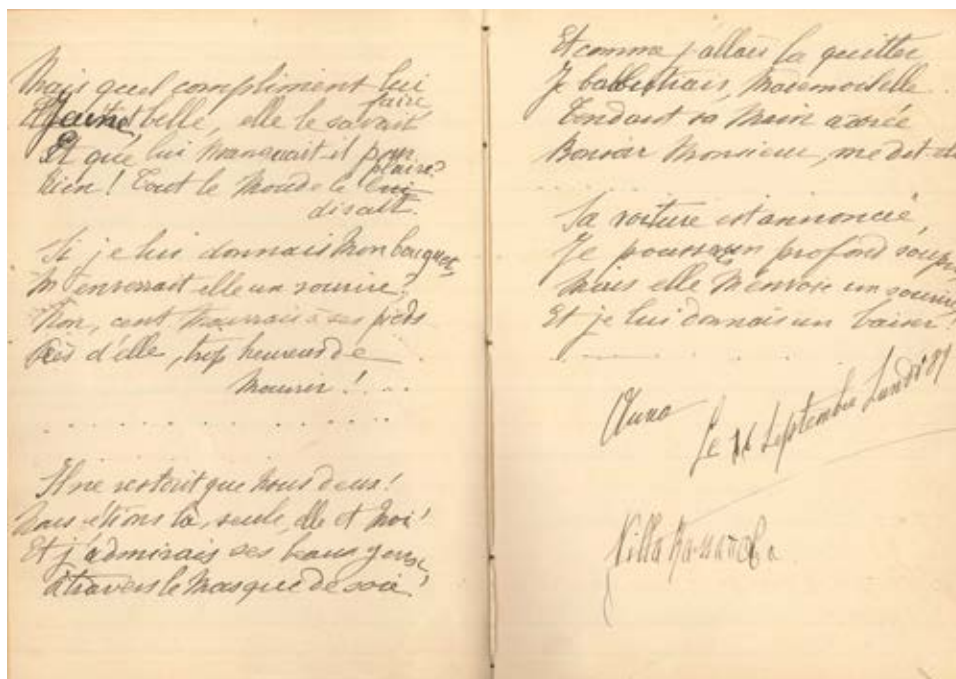 Mais quel compliment lui
faire
était belle, elle le savait
Et que lui manquait-il pour
plaire?
Rien! Tout le Monde le lui
disait.
Si je lui donnais Mon bouquet,
M'enverrait elle un sourire?
Non, cent mourrais à ses pieds
Près d'elle, trop heureux de
Mourir! ...
Il ne restait que Nous deux!
Nous étions là, seuls, elle et Moi!
Et j'admirais ses beaux yeux,
à travers le Masque de soie!
Et comme j'allais la quitter
Je balbutiais, Mademoiselle.
Tendant sa Main
Bonsoir Monsieur, me dit
Sa voiture est annoncée
Je poussai un profond soupir
Mais elle M'envoie un sourire,
Et je lui donnais un baiser!
Le Septembre Lundi
Villa